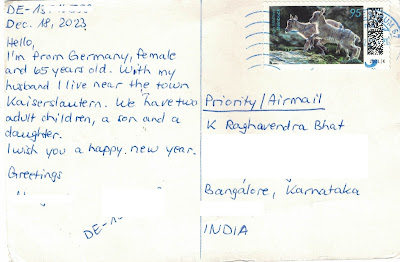 Dec. 18, 2023
Hello,
I'm from Germany, female
and 65 years old. With my
husband I live near the town
Kaiserslautern. We have two
adult children, a son and a
daughter.
I wish you a happy new year.
Greetings
95
Priority/Airmail
K Raghavendra Bhat
Bangalore, Karnataka
INDIA